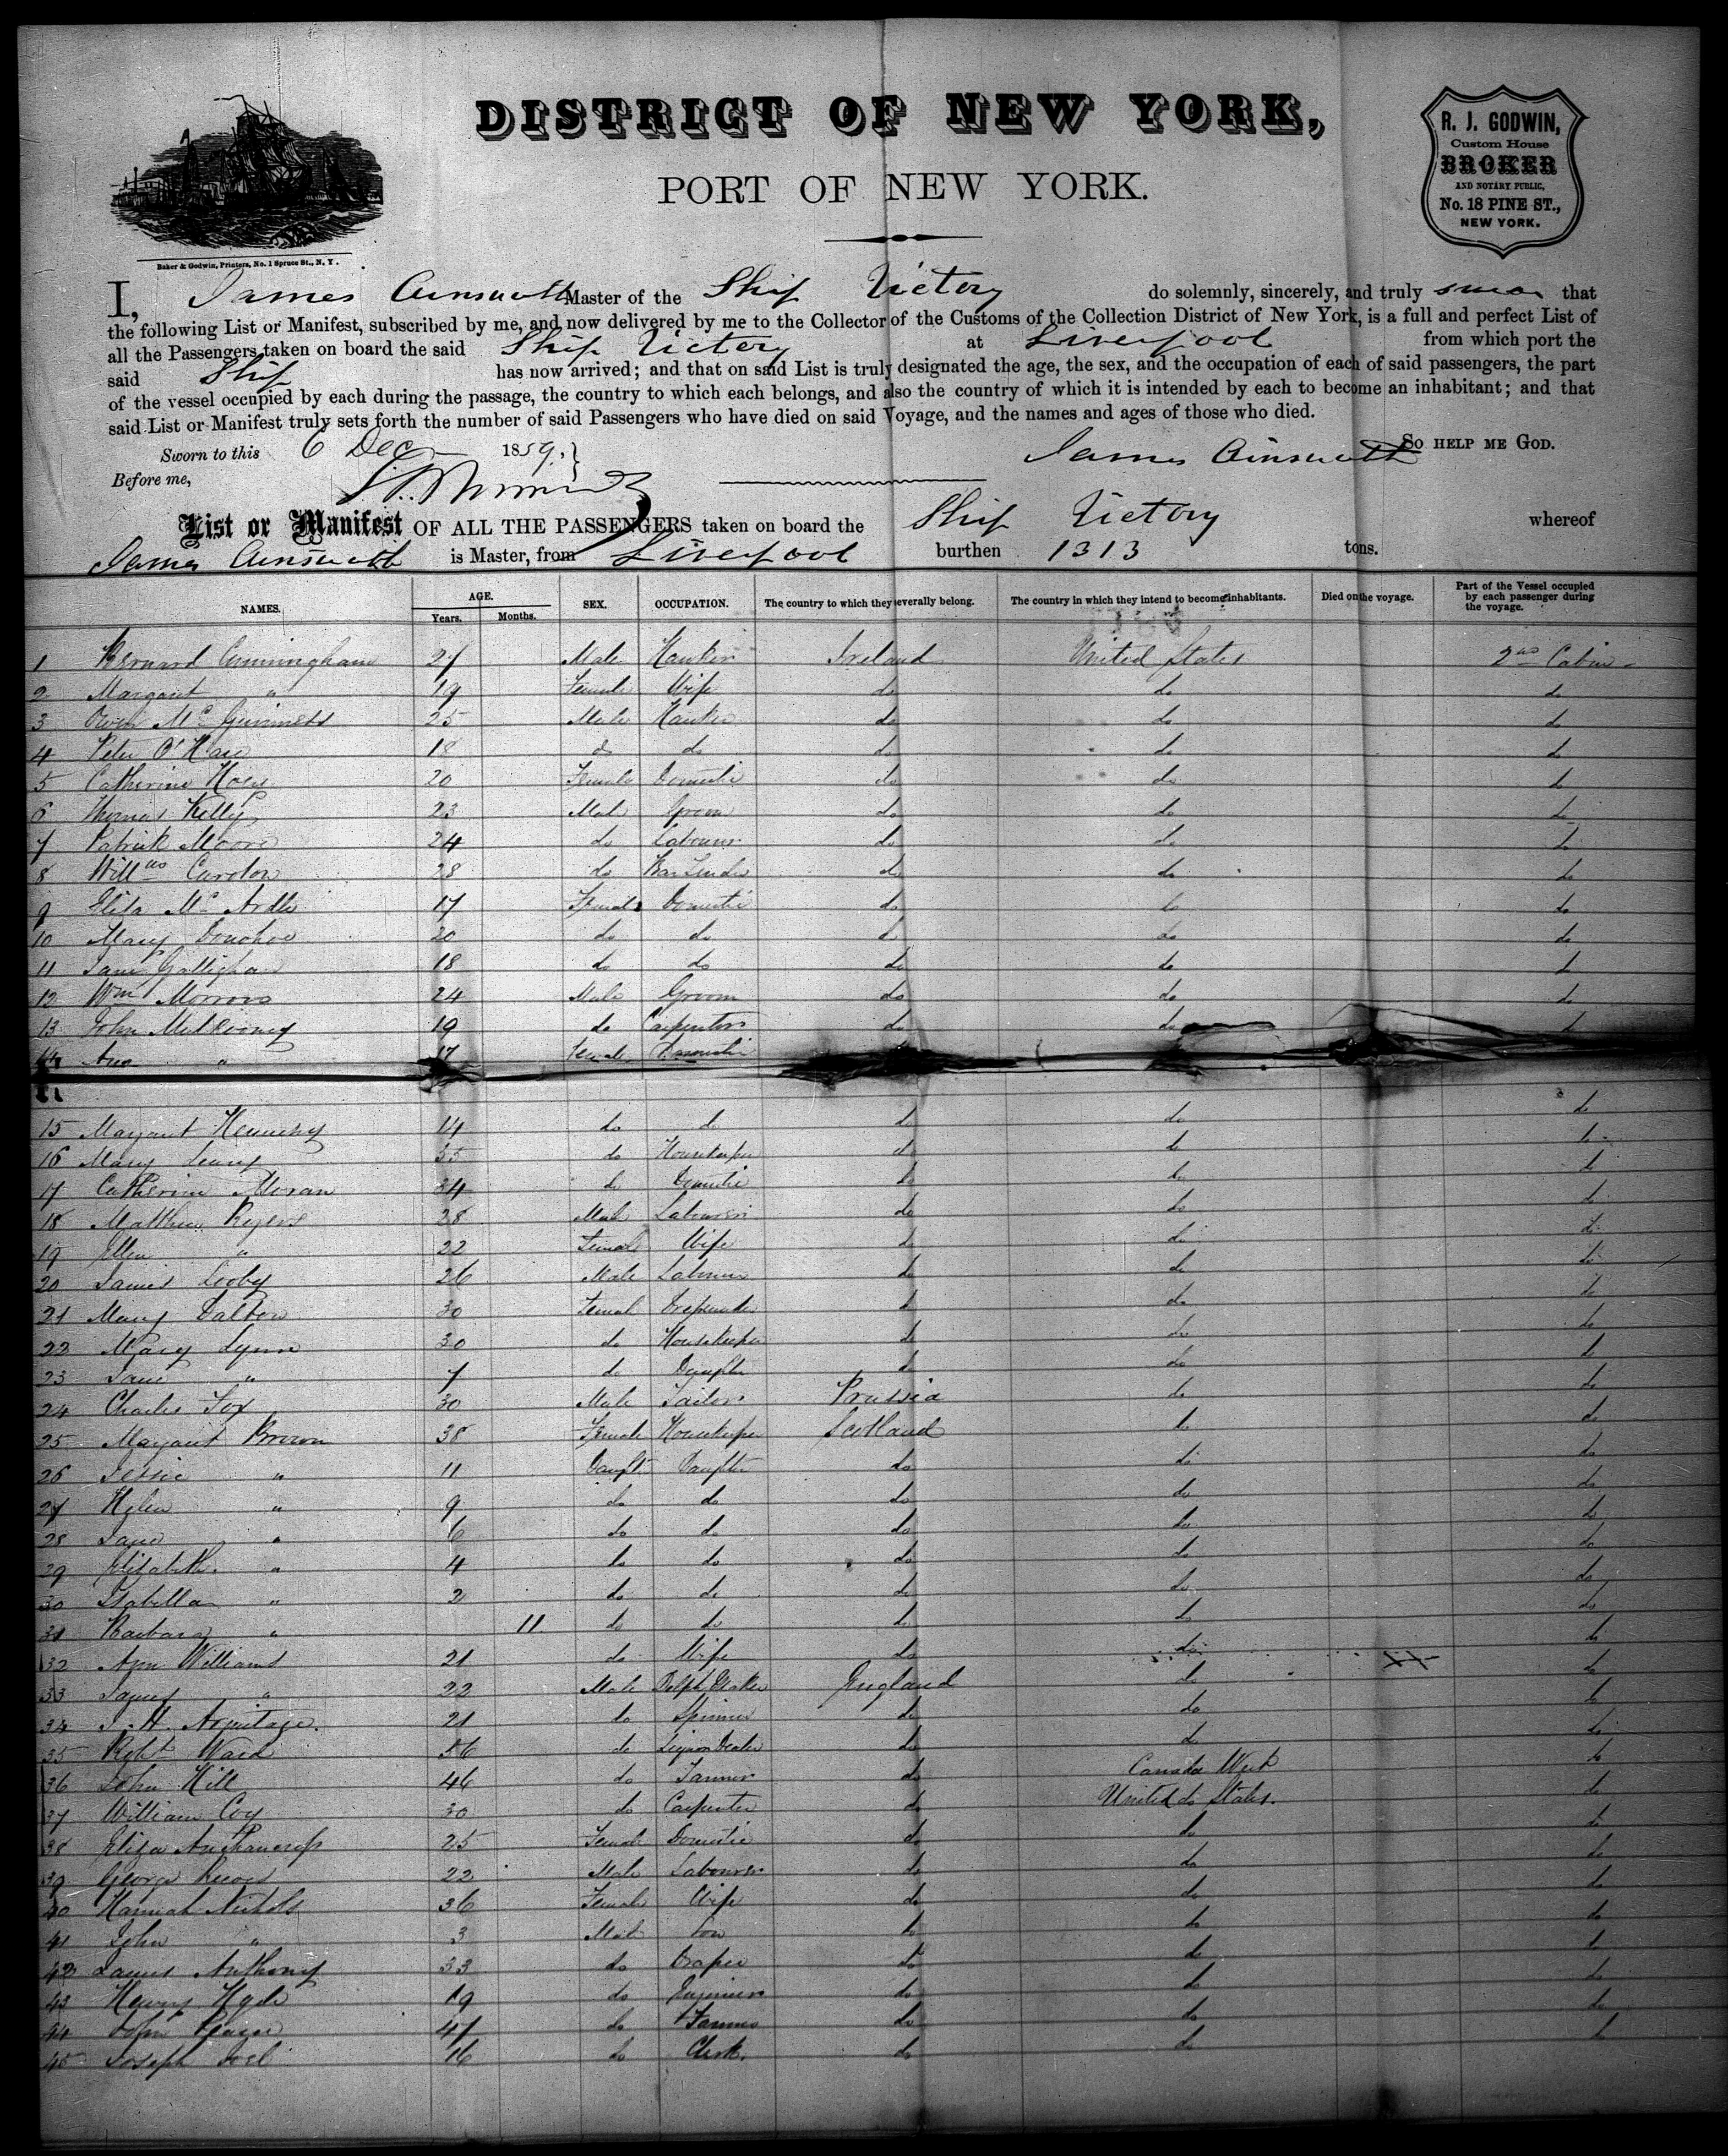 DISTRICT OF NEW YORK,
PORT OF NEW YORK.
R. J. GODWIN,
Custom House
BROKER
AND NOTARY PUBLIC,
No. 18 PINE ST.,
NEW YORK.
Baker & Godwin, Printers, No. 1 Spruce St., N. Y.
I, James Ainsworth Master of the Ship Victory do solemnly, sincerely, and truly swear that
the following List or Manifest, subscribed by me, and now delivered by me to the Collector of the Customs of the Collection District of New York, is a full and perfect List of
all the Passengers taken on board the said Ship Victory at Liverpool from which port the
said Ship has now arrived; and that on said List is truly designated the age, the sex, and the occupation of each of said passengers, the part
of the vessel occupied by each during the passage, the country to which each belongs, and also the country of which it is intended by each to become an inhabitant; and that
said List or Manifest truly sets forth the number of said Passengers who have died on said Voyage, and the names and ages of those who died.
So HELP ME GOD.
Sworn to this 6 Dec 1859, James Ainsworth
Before me,
List or Manifest OF ALL THE PASSENGERS taken on board the Ship Victory whereof
James Ainsworth is Master, from Liverpool burthen 1313 tons.
NAMES. AGE. Years. Months. SEX. OCCUPATION. The country to which they severally belong. The country in which they intend to become inhabitants. Died on the voyage. Part of the Vessel occupied by each passenger during the voyage.
1 Bernard Cunningham 27 Male Ireland United States 2nd Cabin
2 Margaret " 19 Female Wife do do do
3 Owen McGuinness 25 Male do do do
4 Peter O'Hare 18 do do do do do
5 Catherine Hoey 20 Female Domestic do do do
6 Thomas Kelly 23 Male Groom do do do
7 Patrick Moore 24 do Labourer do do do
8 Willm 28 do Bar Tender do do do
9 Eliza McArdle 17 Female Domestic do do do
10 Mary Donohoe 20 do do do do do
11 Jane Gallighan 18 do do do do do
12 Wm Morrow 24 Male Groom do do do
13 John Mulrooney 19 do Carpenter do do do
14 Ann " 17 Female Domestic
15 Margaret 14 do do do do do
16 Mary 35 do Housekeeper do do do
17 Catherine Moran 34 do Domestic do do do
18 Matthew Rogers 28 Male Labourer do do do
19 Ellen " 22 Female Wife do do do
20 James Looby 26 Male Labourer do do do
21 Mary Dalton 30 Female Dressmaker do do do
22 Mary Lynn 30 do Housekeeper do do do
23 Jane " 7 do Daughter do do do
24 Charles Fox 30 Male Tailor Prussia do do
25 Margaret Brown 38 Female Housekeeper Scotland do do
26 Jessie " 11 Daught Daughter do do do
27 Helen " 9 do do do do do
28 Jane " 6 do do do do do
29 Elizabeth " 4 do do do do do
30 Isabella " 2 do do do do do
31 Barbara " 11 do do do do do
32 Ann Williams 21 do Wife do do do
33 James " 22 Male Delph Maker England do do
34 J. H. Armitage. 21 do Spinner do do do
35 Robt Ward 56 do Liquor Dealer do do do
36 John Hill 46 do do Canada West do
37 William Coy 30 do Carpenter do United do States. do
38 Eliza 25 Female Domestic do do do
39 George 22 Male Labourer do do do
40 Hannah Nichols 36 Female Wife do do do
41 John " 3 Male Son do do do
42 James Anthony 33 do Draper do do do
43 Henry Hyde 19 do Engineer do do do
44 John 47 do Farmer do do do
45 Joseph Joel 16 do Clerk. do do do